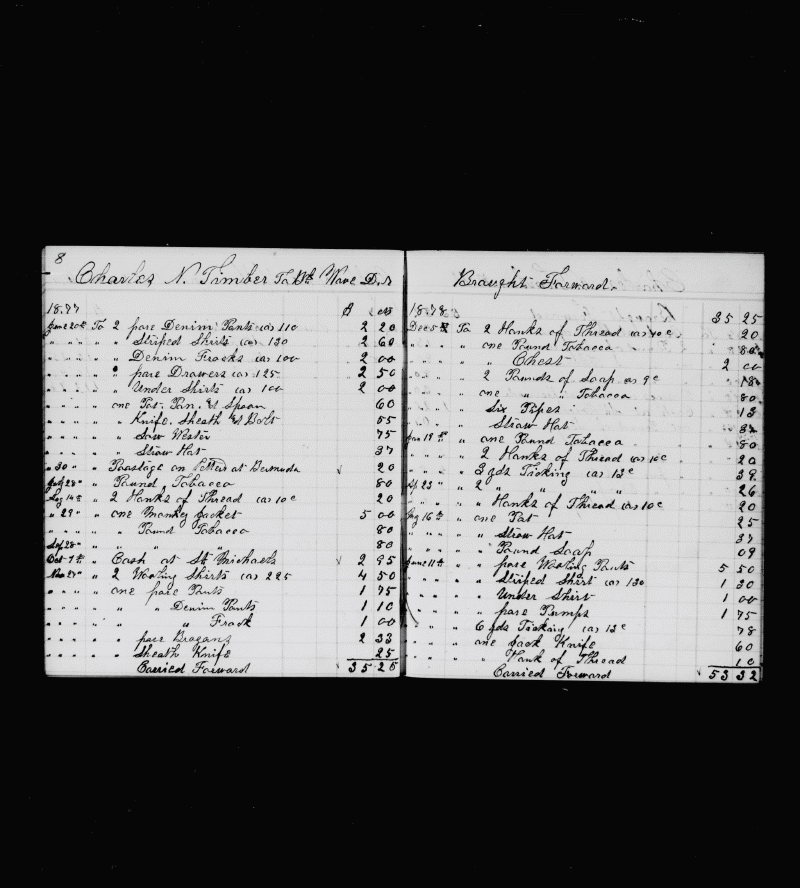 8
Charles N. Timber To Bk Wave Dr
1877 $ cts
June 20th To 2 pare Denim Pants @ 110 2 20
" " " " " Striped Shirts @ 130 2 60
" " " " " Denim Frocks @ 100 2 00
" " " " " pare Drawers @ 125 2 50
" " " " " Under Shirts @ 100 2 00
" " " " one Pot. Pan. & Spoon 60
" " " " " Knife. Sheath & Belt 55
" " " " " Sow Wester 75
" " " " " Straw Hat 37
" 30 " " Poastage on Letters at Bermuda 20
July 28 " " Pound Tobacco 80
Aug 14th " 2 Hanks of Thread @ 10 c 20
" 29 " " one Monkey Jacket 5 00
" " " " " Pound Tobacco 80
Sep 28 " " " " 80
Oct 7th " Cash at St Michaels 2 95
Nov 27 " " 2 Woolling Shirts @ 225 4 50
" " " " one pare Pants 1 75
" " " " " " Denim Pants 1 10
" " " " " " Frock 1 00
" " " " " pare Brogans 2 33
" " " " " Sheath Knife 25
Carried Forward 35 25
Braught Forward.
1878 35 25
Dec 5th To 2 Hanks of Thread @ 10 c. 20
" " " " one Pound Tobacco 80
" " " " " Chest 2 00
" " " " 2 Pounds of Soap @ 9 c 18
" " " " one " " Tobacco 80
" " " " Six Pipes 13
" " " " Straw Hat 37
Jan 19th " one Pound Tobacco 80
" " " " 2 Hanks of Thread @ 10 c 20
" " " " 3 yds Ticking @ 13 c 39
23 " " 2 " " " " 26
" " " " " Hanks of Thread @ 10 c 20
16th " one Pot 25
" " " " " Straw Hat 37
" " " " " Pound Soap 09
June 11th " " pare Woolling Pants 5 50
" " " " " Striped Shirt @ 130 1 30
" " " " " Under Shirt 1 00
" " " " " pare Pumps 1 75
" " " " 6 yds Ticking @ 13 c 78
" " " " one Jack Knife 60
" " " " " Hank of Thread 10
Carried Forward 53 32